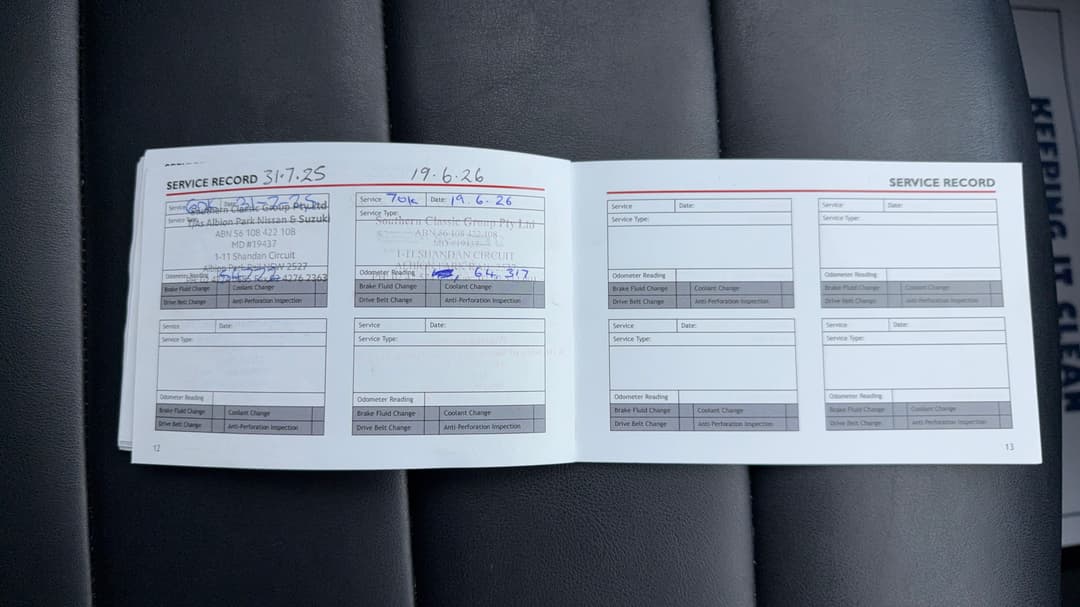 SERVICE RECORD 31.7.25
19.6.26
Service 60k Date: 31-7-25
Southern Classic Group Pty Ltd
Service Type:
T/As Albion Park Nissan & Suzuki
ABN 56 108 422 108
MD #19437
1-11 Shandan Circuit
Albion Park Rail NSW 2527
Odometer Reading
4276 2363
Brake Fluid Change
Coolant Change
Drive Belt Change
Anti-Perforation Inspection
Service 70k Date: 19.6.26
Service Type:
Southern Classic Group Pty Ltd
ABN 56 108 422 108
MD #19437
1-11 SHANDAN CIRCUIT
Odometer Reading 64,317
Brake Fluid Change
Coolant Change
Drive Belt Change
Anti-Perforation Inspection
Service
Date:
Service Type:
Odometer Reading
Brake Fluid Change
Coolant Change
Drive Belt Change
Anti-Perforation Inspection
Service
Date:
Service Type:
Odometer Reading
Brake Fluid Change
Coolant Change
Drive Belt Change
Anti-Perforation Inspection
12
SERVICE RECORD
Service
Date:
Service Type:
Odometer Reading
Brake Fluid Change
Coolant Change
Drive Belt Change
Anti-Perforation Inspection
Service
Date:
Service Type:
Odometer Reading
Brake Fluid Change
Coolant Change
Drive Belt Change
Anti-Perforation Inspection
Service
Date:
Service Type:
Odometer Reading
Brake Fluid Change
Coolant Change
Drive Belt Change
Anti-Perforation Inspection
Service
Date:
Service Type:
Odometer Reading
Brake Fluid Change
Coolant Change
Drive Belt Change
Anti-Perforation Inspection
13
KEEPING IT CLEAN